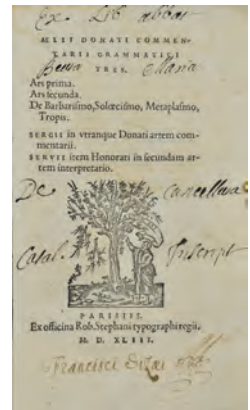 Ex Lib
ÆLII DONATI COMMEN-
TARII GRAMMATICI
TRES.
Ars prima.
Ars secunda.
De Barbarismo, Solœcismo, Metaplasmo,
Tropis.
SERGII in vtranque Donati artem com-
mentarii.
SERVII item Honorati in secundam ar-
tem interpretatio.
De
Casal. Inscript
PARISIIS.
Ex officina Rob. Stephani typographi regii.
M. D. XLIII.
Francisci